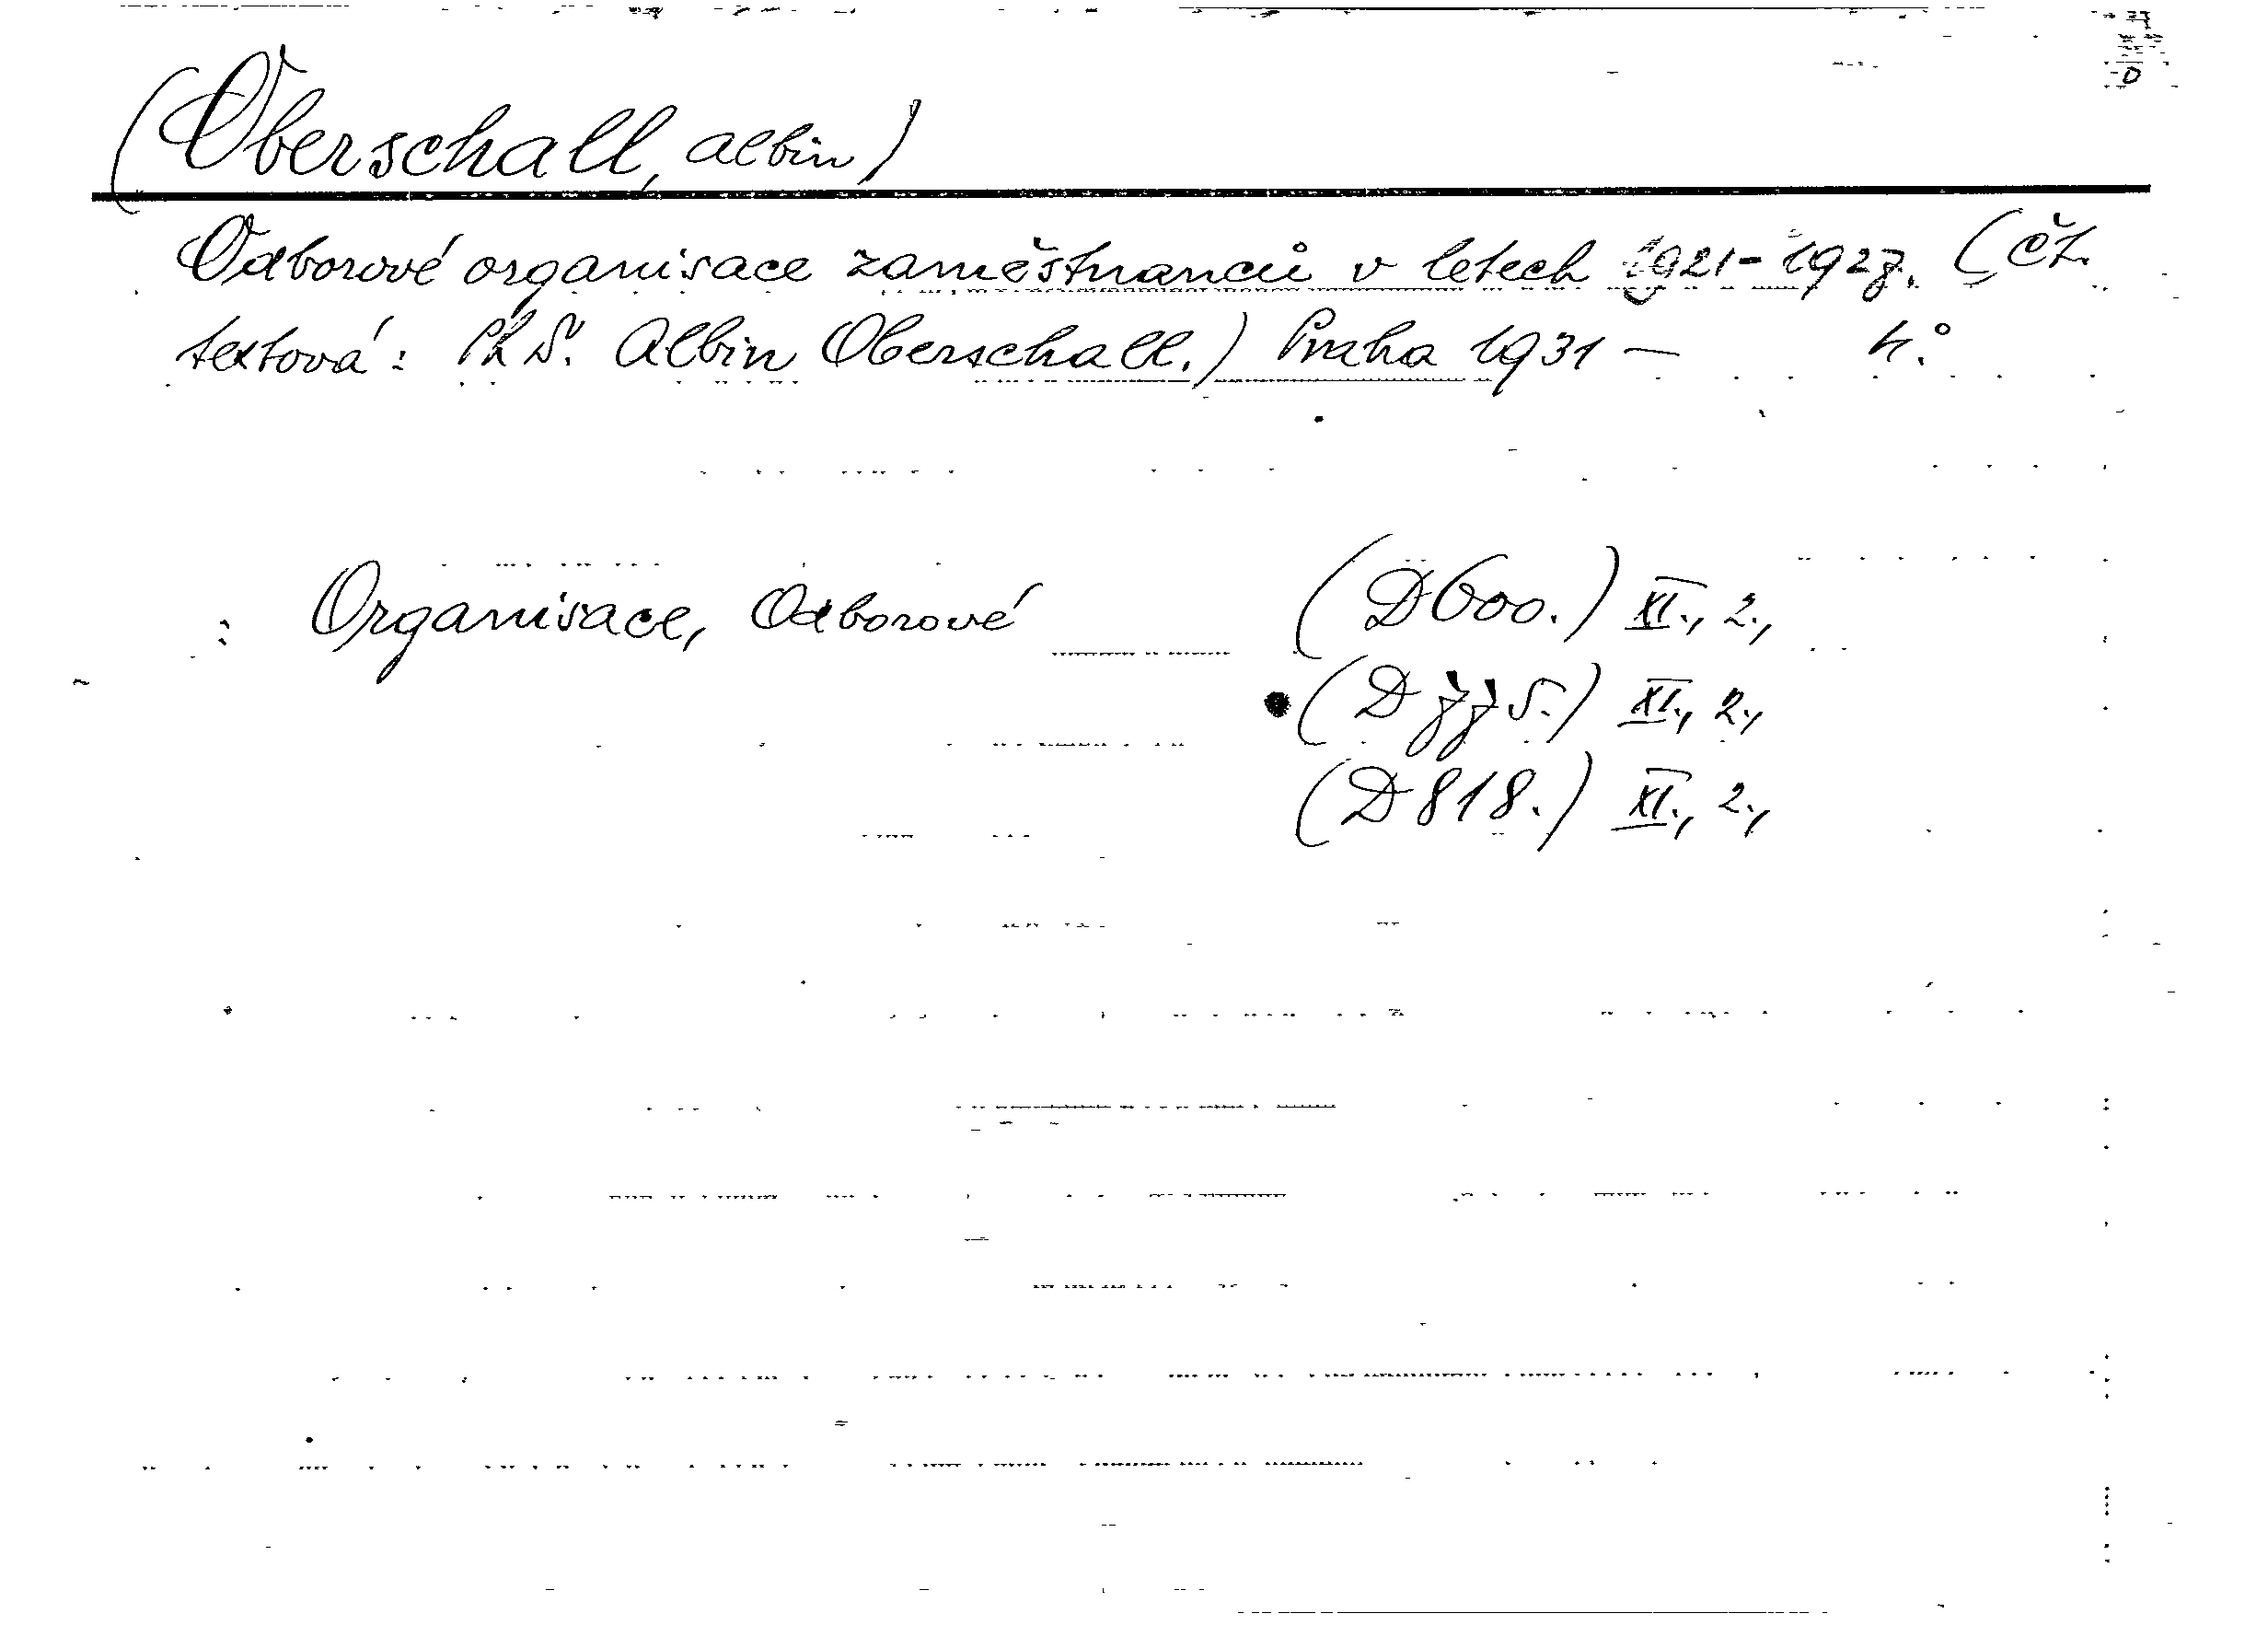 (Oberschall, Albin)
Odborové organisace zaměstnanců v letech 1921-1927. (Čt.
textová: Ph Dr. Albin Oberschall.) Praha 1931 — 4°
: Organisace, Odborové (D600.) XI., 2.,
(D775.) XI., 2.,
(D818.) XI., 2.,